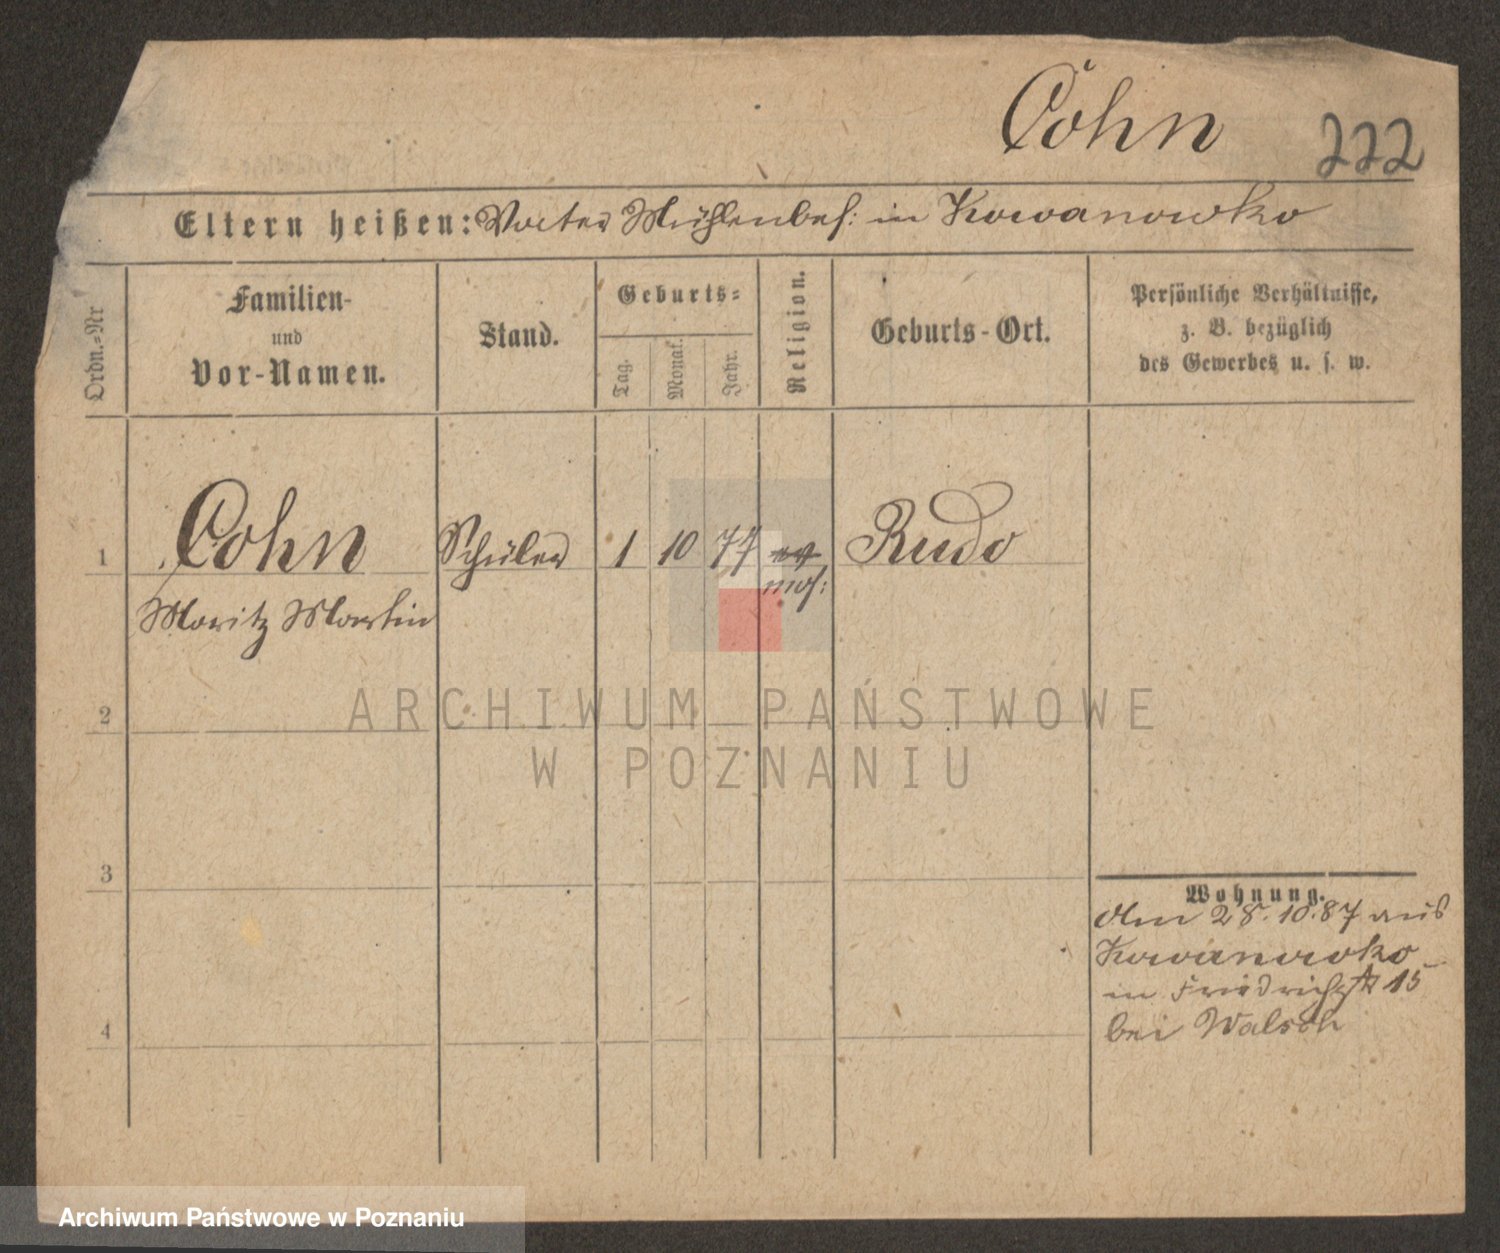 Cohn 222
Eltern heißen: Vater Mühlenbes: in Kowanowko
Ordn.-Nr
Familien-
und
Vor-Namen.
Stand.
Geburts-
Tag.
Monat.
Jahr.
Religion.
Geburts-Ort.
Persönliche Verhältnisse,
z. B. bezüglich
des Gewerbes u. s. w.
1 Cohn Schüler 1 10 77 ev Rudo
mos:
Moritz Martin
2
3
4
Wohnung.
Am 28.10.87 aus
Kowanowko
in Friedrichstr 15
bei Walsch
ARCHIWUM PAŃSTWOWE
W POZNANIU
Archiwum Państwowe w Poznaniu